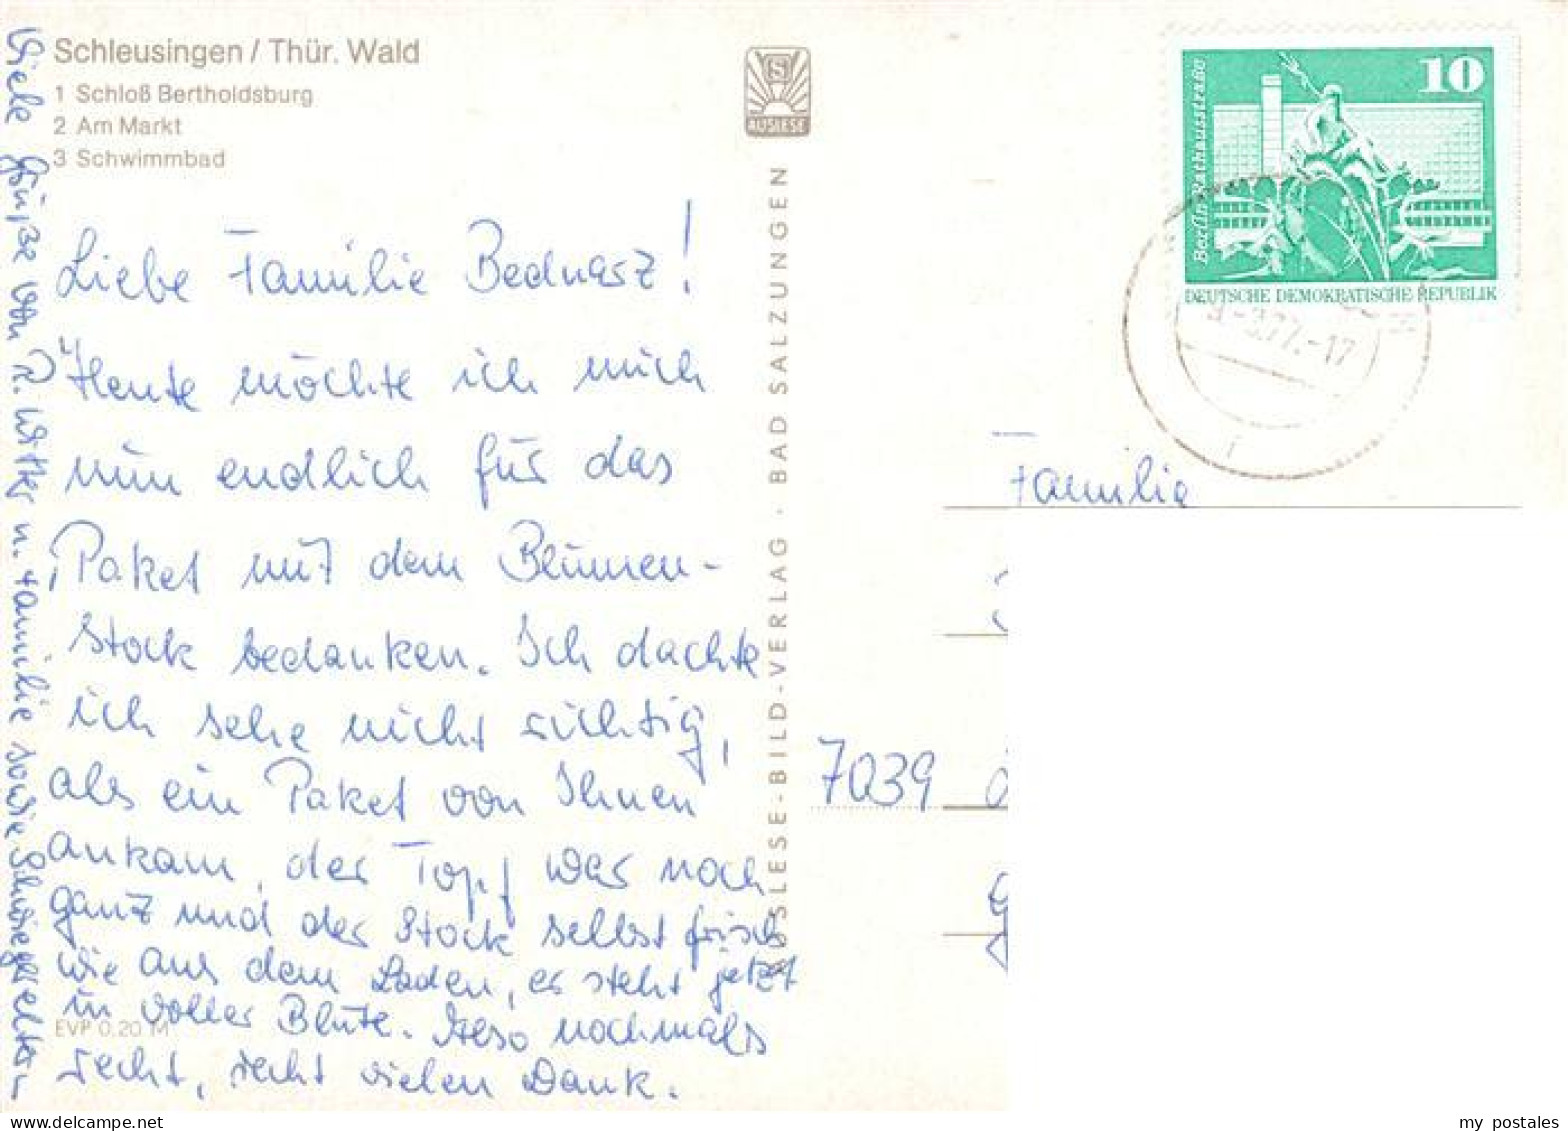 Schleusingen / Thür. Wald
1 Schloß Bertholdsburg
2 Am Markt
3 Schwimmbad
S
AUSLESE
10
Berlin-Rathausstraße
DEUTSCHE DEMOKRATISCHE REPUBLIK
-3.77.-17
Liebe Familie Bednarz!
Heute möchte ich mich
nun endlich für das
Paket mit dem Blumen-
stock bedanken. Ich dachte
ich sehe nicht richtig,
als ein Paket von Ihnen
ankam, der Topf war noch
ganz und der Stock selbst frisch
wie aus dem Laden, er steht jetzt
in voller Blüte. Also nochmals
recht, recht vielen Dank.
EVP 0,20 M
Viele Grüße von R. Witter u. Familie sowie Schwiegereltern
AUSLESE-BILD-VERLAG · BAD SALZUNGEN
Familie
7039
my postales